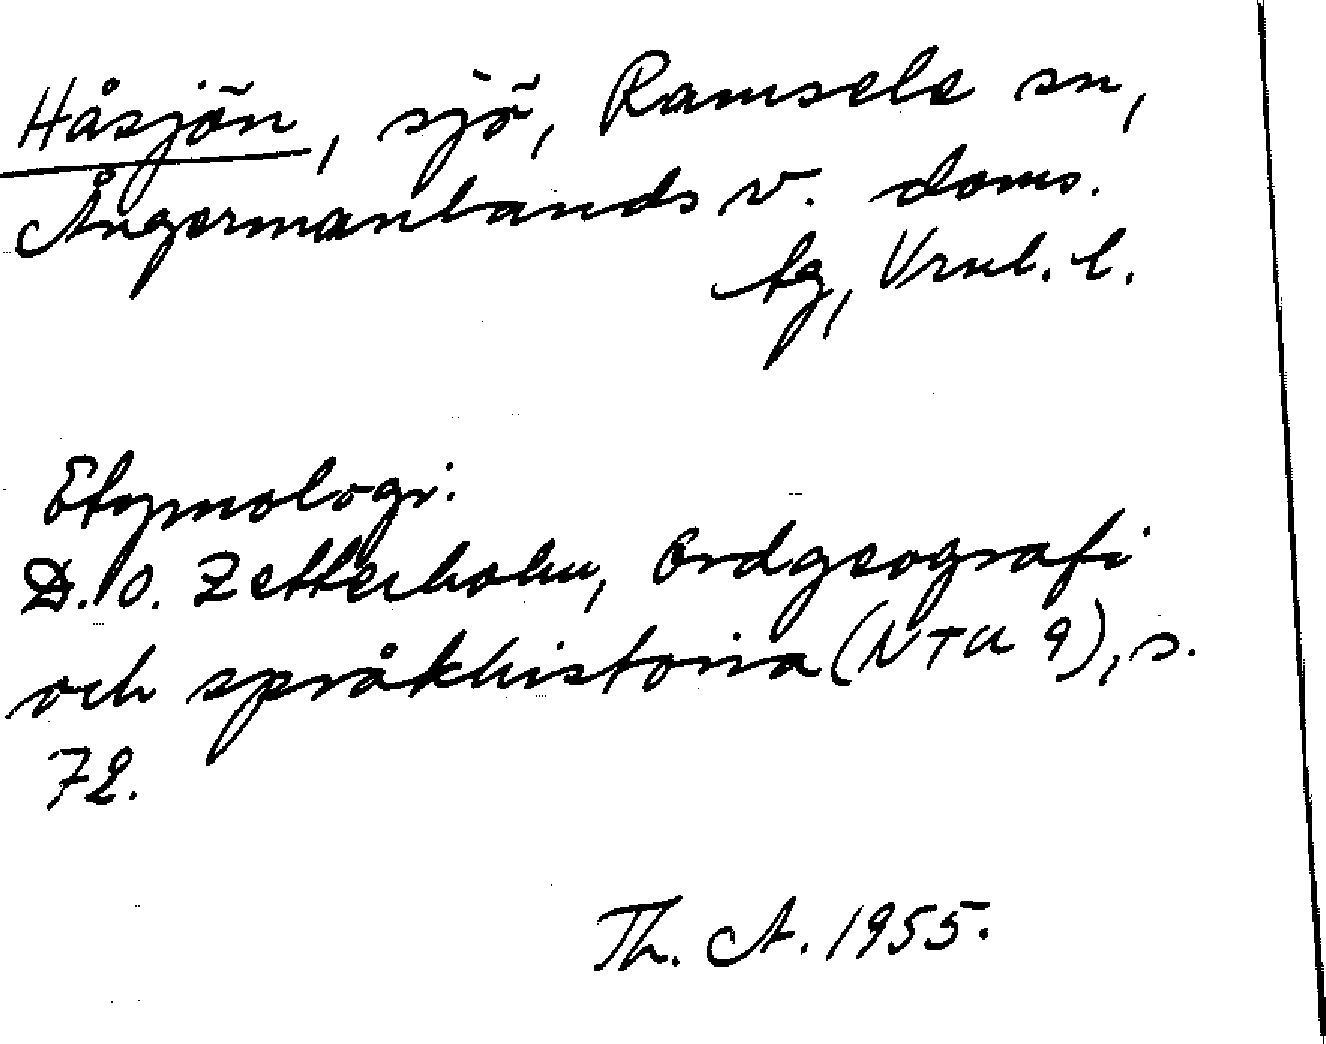 Håsjön, sjö, Ramsele sn,
Ångermanlands v. doms.
tg, Vrnl. l.
Etymologi.
D. O. Zetterholm, Ordgeografi
och språkhistoria (NTU 9), s.
72.
Th. A. 1955.